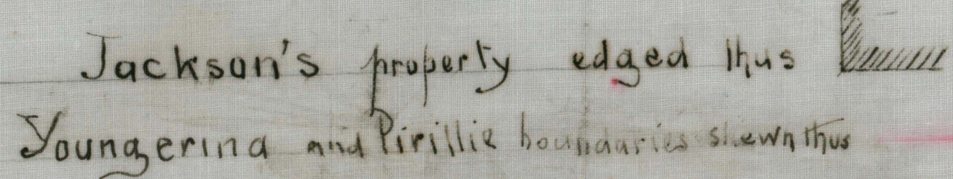 Jackson's property edged thus
Youngerina and Pirillie boundaries shewn thus